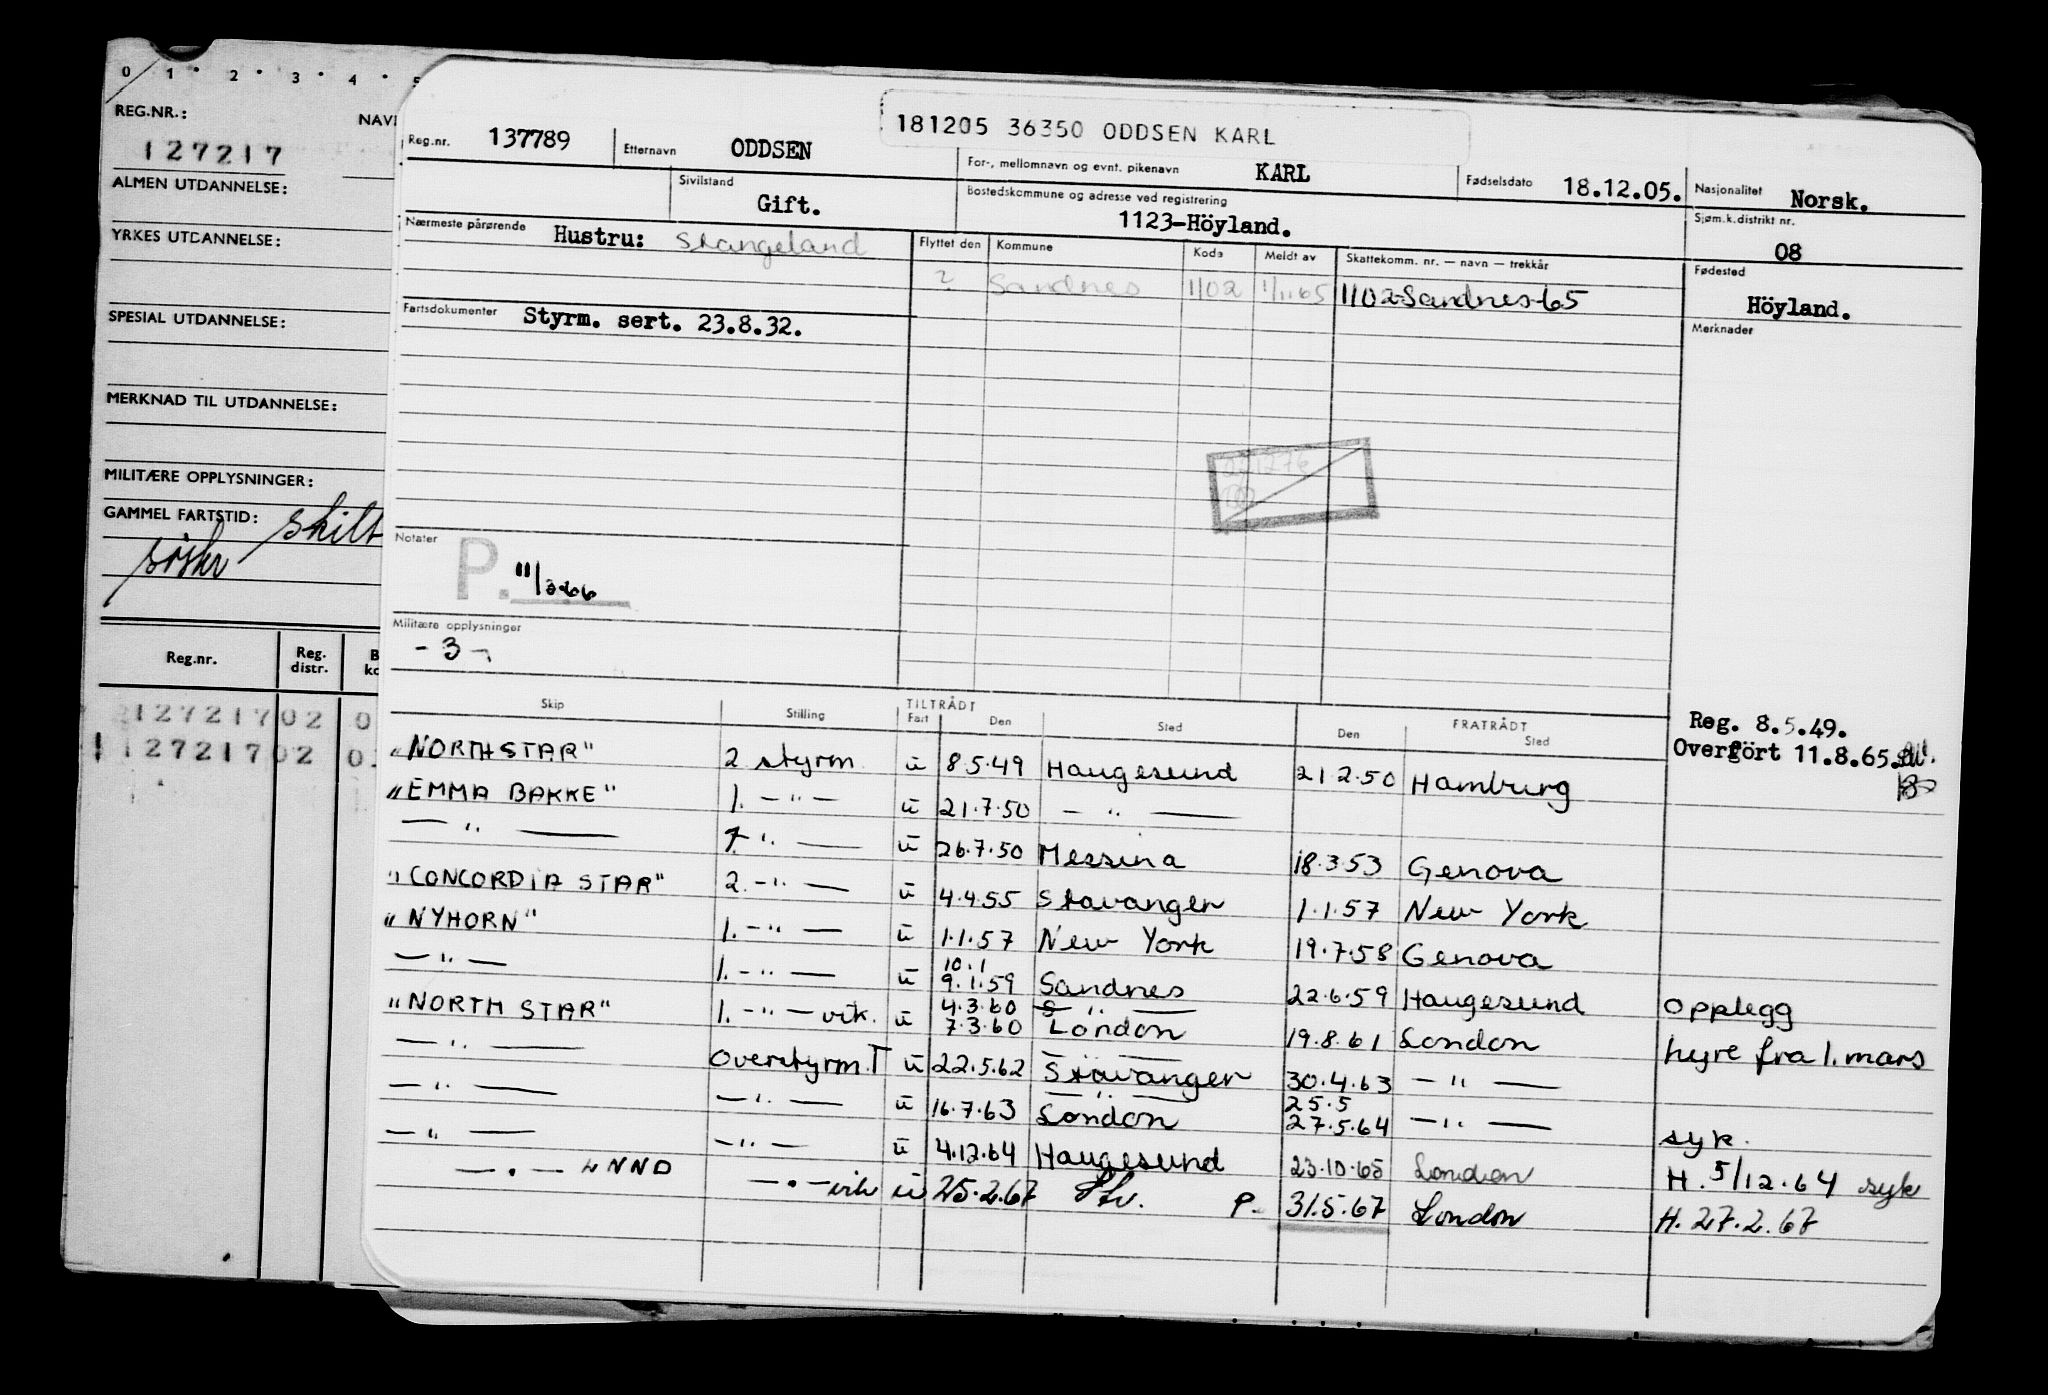 0 1 2 3 4 5
REG.NR.: NAV
127217
ALMEN UTDANNELSE:
YRKES UTDANNELSE:
SPESIAL UTDANNELSE:
MERKNAD TIL UTDANNELSE:
MILITÆRE OPPLYSNINGER:
GAMMEL FARTSTID: skilt
Reg.nr. Reg. distr. B ko
127217 02 0
127217 02 0
181205 36350 ODDSEN KARL
Reg.nr. 137789 Etternavn ODDSEN For-, mellomnavn og evnt. pikenavn KARL Fødselsdato 18.12.05. Nasjonalitet Norsk.
Sivilstand Gift. Bostedskommune og adresse ved registrering 1123-Höyland. Sjøm.k.distrikt nr. 08
Nærmeste pårørende Hustru: Stangeland
Flyttet den Kommune Kode Meldt av Skattekomm. nr. — navn — trekkår
? Sandnes 1102 1/11 65 1102-Sandnes-65
Fødested Höyland.
Fartsdokumenter Styrm. sert. 23.8.32.
Merknader
Notater
P. 11/3-66
Militære opplysninger
- 3 -
Reg. 8.5.49.
Overfört 11.8.65.
Skip Stilling TILTRÅDT Fart Den Sted FRATRÅDT Den Sted
"NORTHSTAR" 2 styrm u 8.5.49 Haugesund 21.2.50 Hamburg
"EMMA BAKKE" 1. — " — u 21.7.50 — " —
— " — — " — u 26.7.50 Messina 18.3.53 Genova
"CONCORDIA STAR" 2. — " — u 4.4.55 Stavanger 1.1.57 New York
"NYHORN" 1. — " — u 1.1.57 New York 19.7.58 Genova
— " — 1. — " — u 10.1 9.1.59 Sandnes 22.6.59 Haugesund Opplegg
"NORTH STAR" 1. — " — vik. u 4.3.60 7.3.60 S — " — London 19.8.61 London hyre fra 1. mars
— " — Overstyrm. T u 22.5.62 Stavanger 30.4.63 — " —
— " — — " — u 16.7.63 London 25.5 27.5.64 — " — syk.
— " — — " — u 4.12.64 Haugesund 23.10.65 London H. 5/12.64 syk
— " — LNND — " — vik u 25.2.67 Stv. P. 31.5.67 London H. 27.2.67